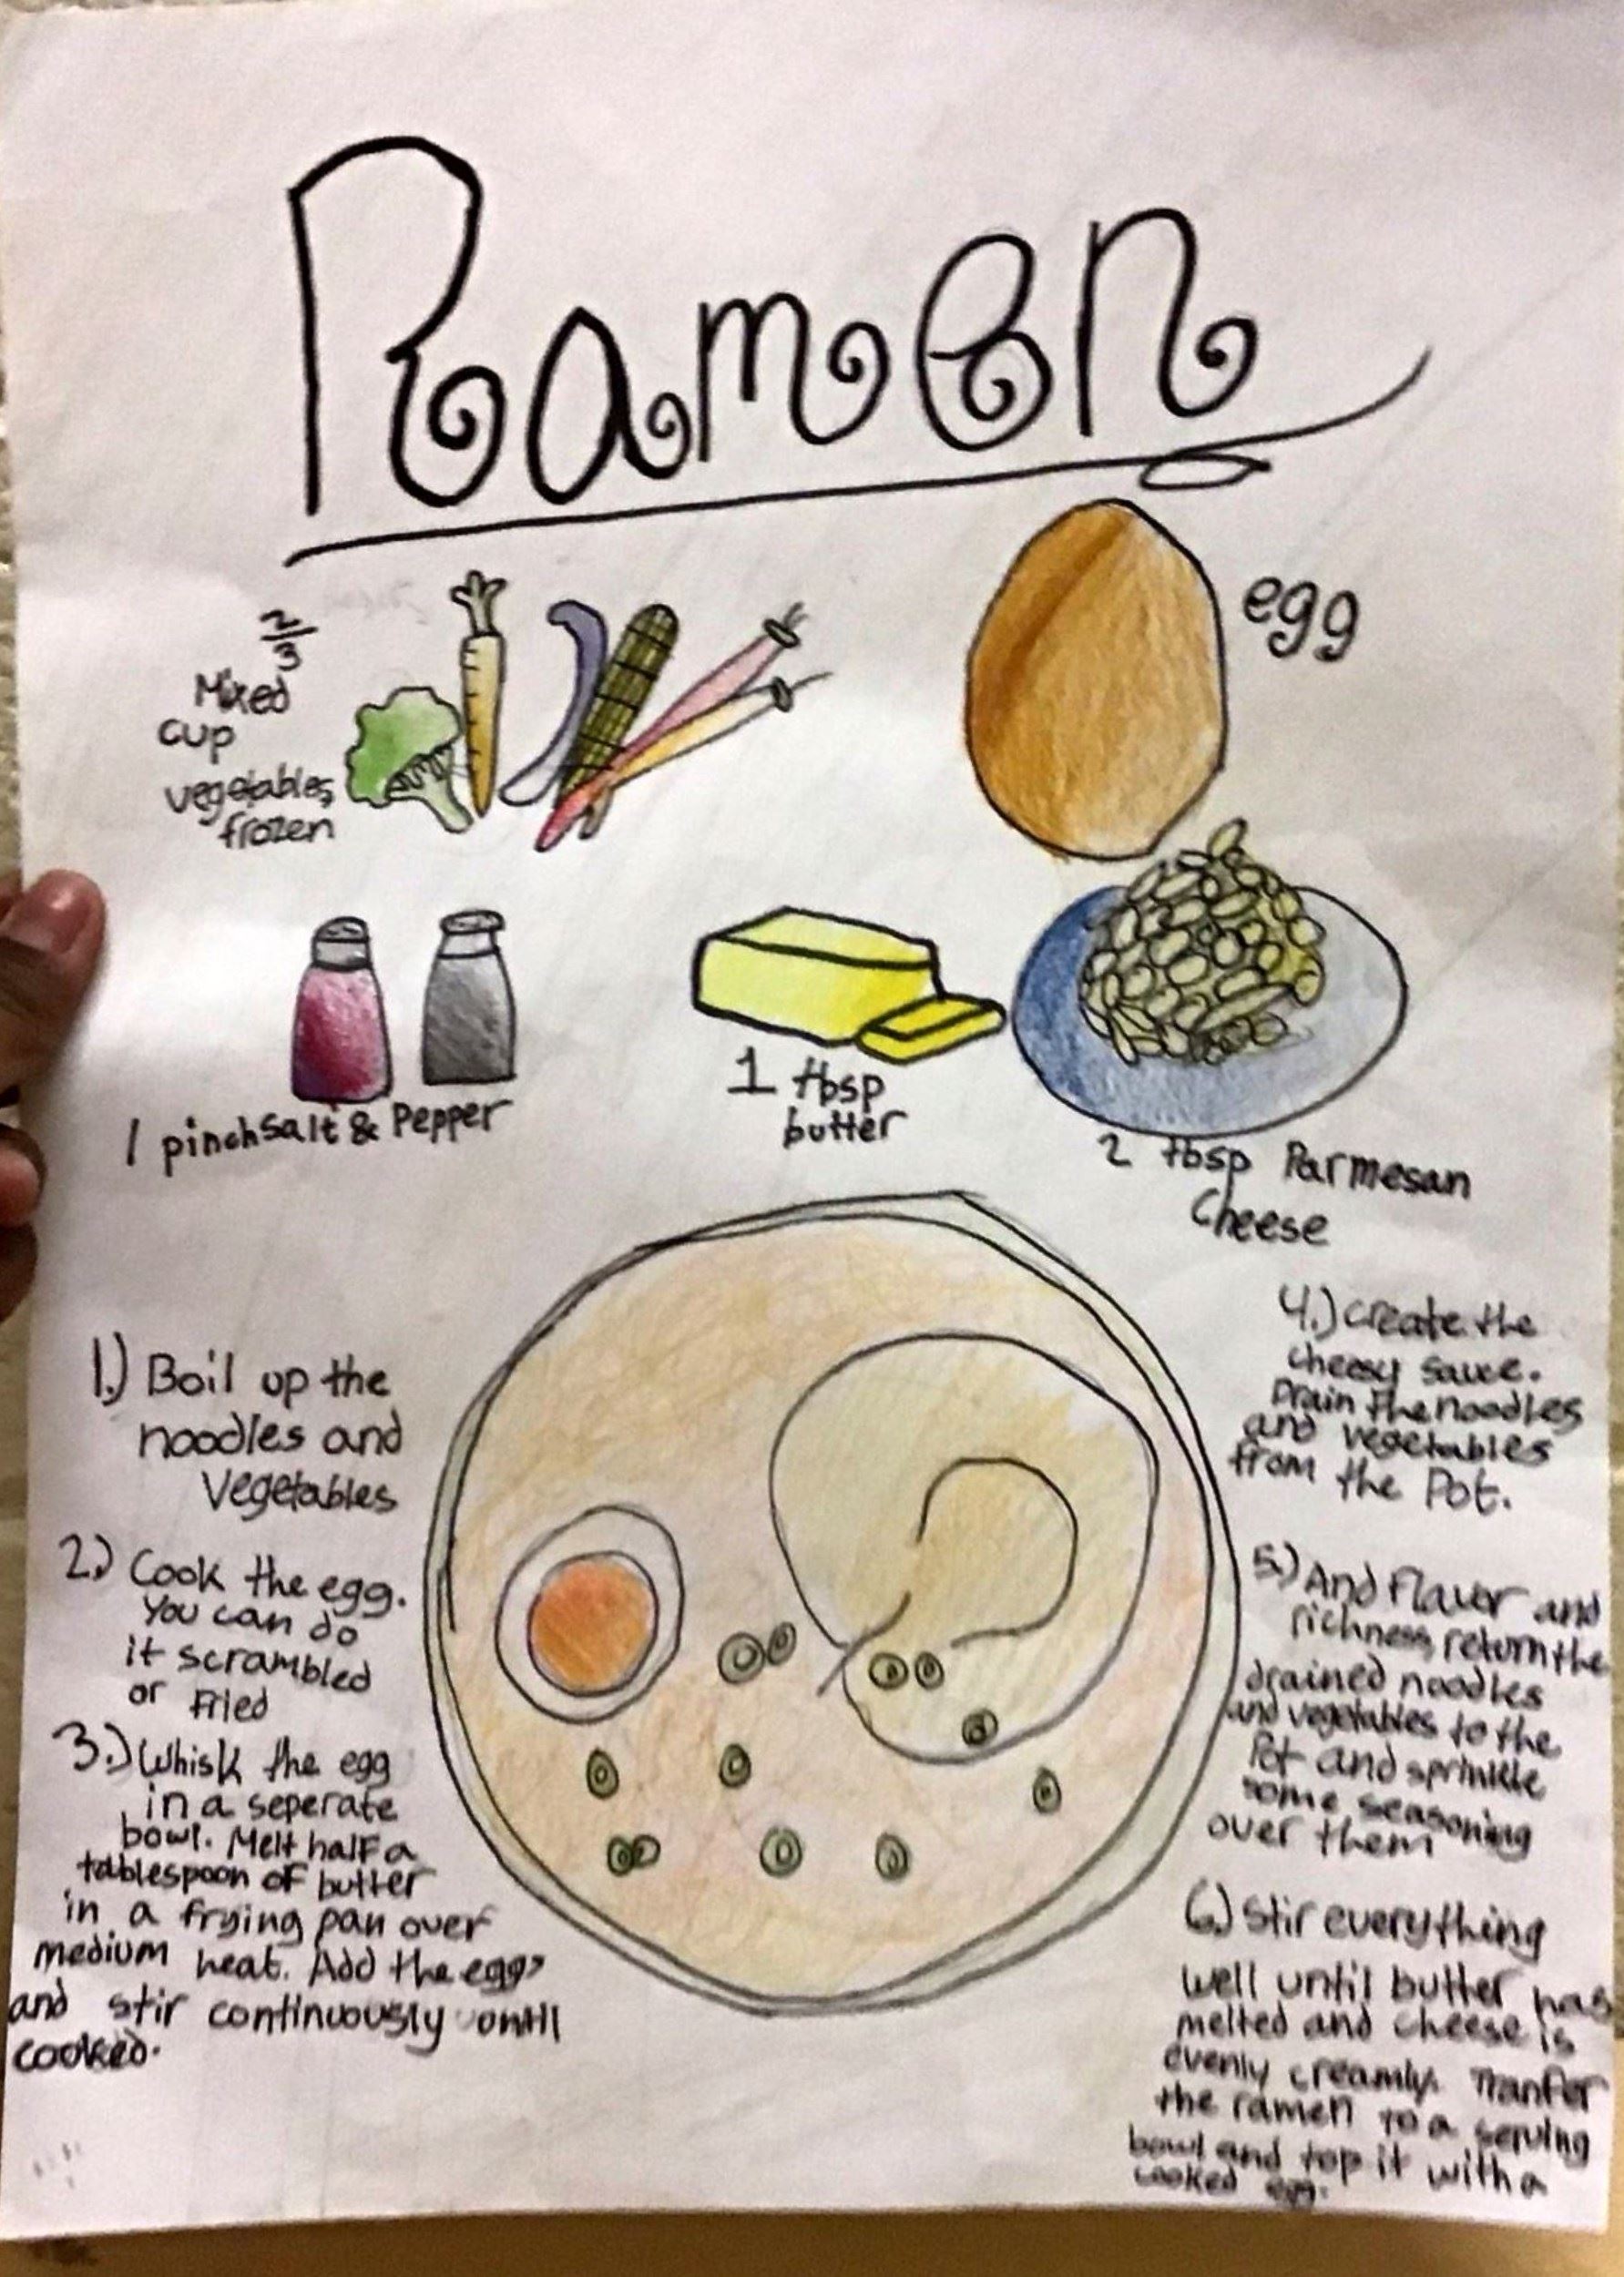 Ramen
2/3
Mixed
cup
vegetables,
frozen
egg
1 pinch Salt & Pepper
1 tbsp
butter
2 tbsp Parmesan
Cheese
1.) Boil up the
noodles and
Vegetables
2.) Cook the egg.
You can do
it scrambled
or Fried
3.) Whisk the egg
in a seperate
bowl. Melt half a
tablespoon of butter
in a frying pan over
medium heat. Add the eggs
and stir continuously until
cooked.
4.) Create the
cheesy sauce.
Drain the noodles
and vegetables
from the Pot.
5.) And Flavor and
richness, return the
drained noodles
and vegetables to the
Pot and sprinkle
some seasoning
over them
6.) Stir everything
well until butter has
melted and cheese is
evenly creamly. Tranfer
the ramen to a serving
bowl and top it with a
cooked egg.